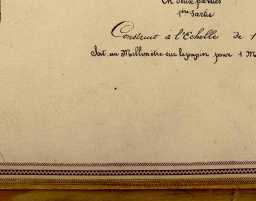 en deux parties
1ère Partie
Construit à l'Echelle de 1
Soit un Millimètre sur le papier pour 1 M